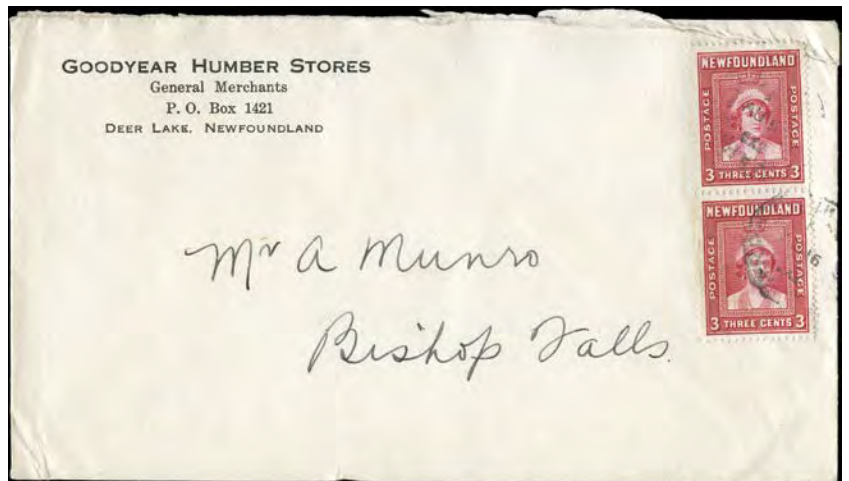 GOODYEAR HUMBER STORES
General Merchants
P. O. Box 1421
DEER LAKE, NEWFOUNDLAND
NEWFOUNDLAND
POSTAGE POSTAGE
3 THREE CENTS 3
NEWFOUNDLAND
POSTAGE POSTAGE
3 THREE CENTS 3
Mr A Munro
Bishop Falls.